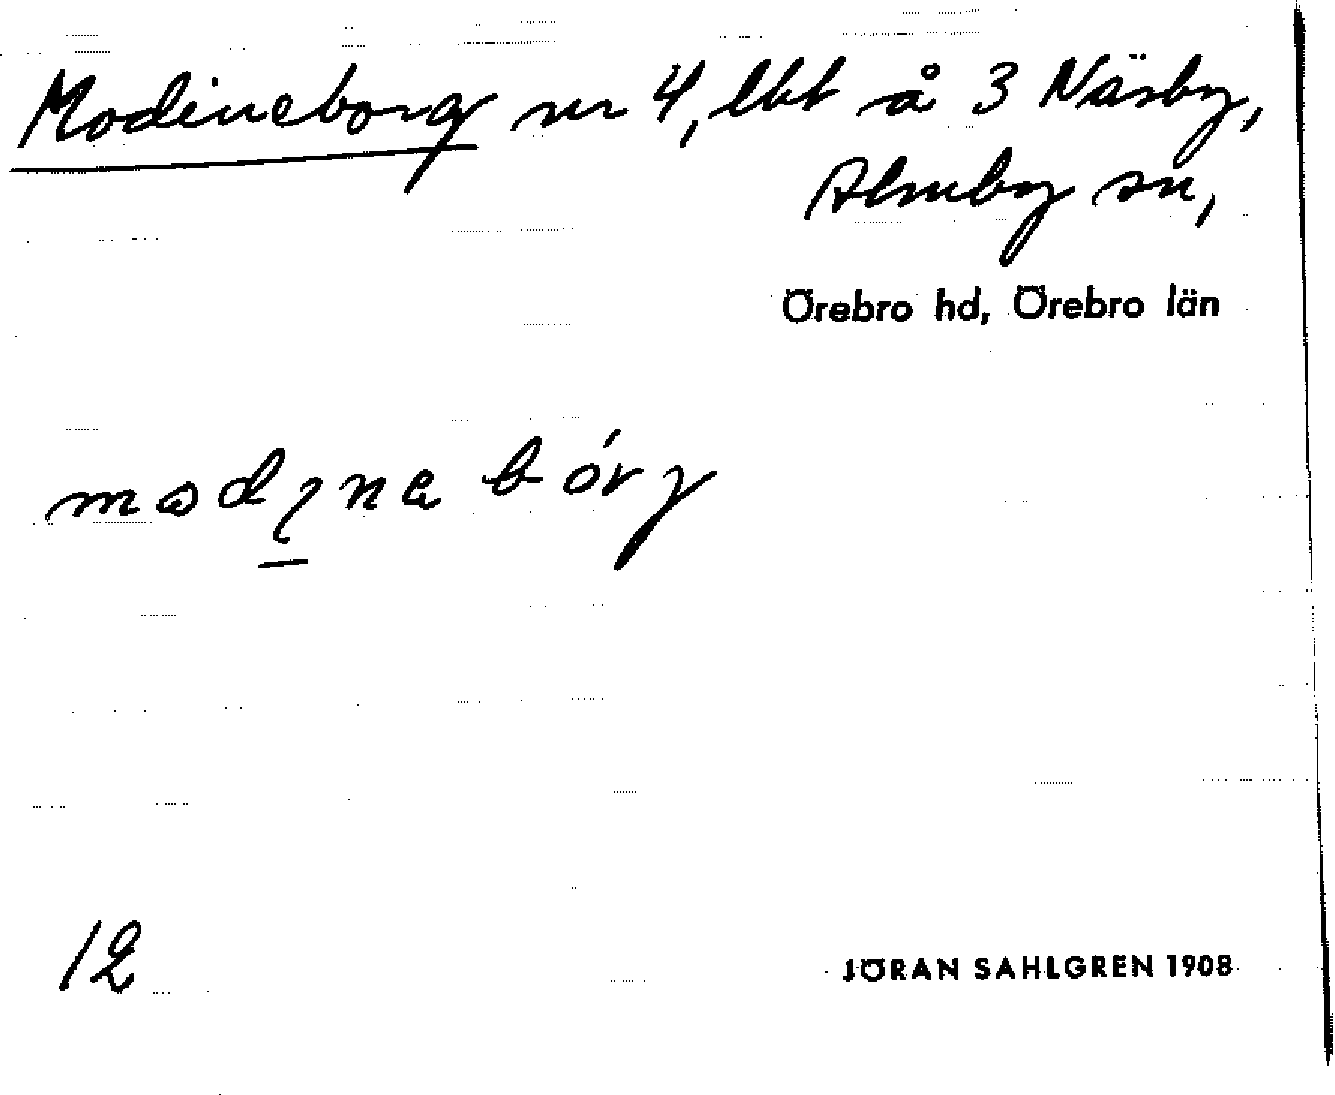 Modineborg nr 4, lht å 3 Näsby,
Almby sn,
Örebro hd, Örebro län
12
JÖRAN SAHLGREN 1908